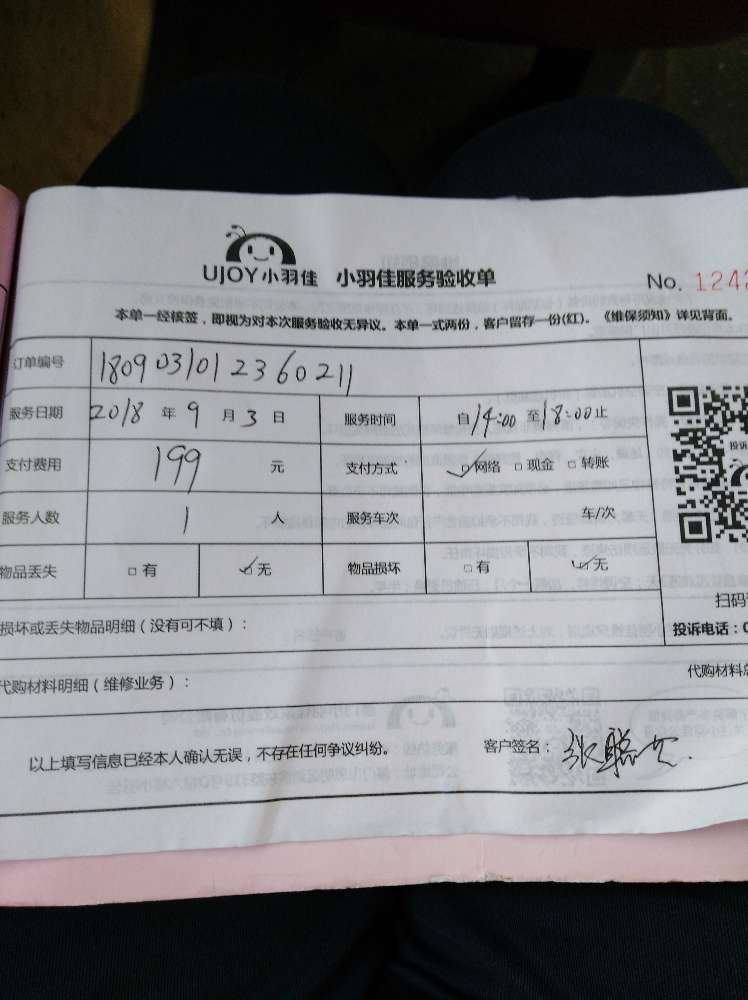 UJOY小羽佳 小羽佳服务验收单 No. 1242
本单一经核签，即视为对本次服务验收无异议。本单一式两份，客户留存一份(红)。《维保须知》详见背面。
订单编号 180903101236021 1
服务日期 2018 年 9 月 3 日 服务时间 自 14:00 至 18:00 止
支付费用 199 元 支付方式 ☑网络 □现金 □转账
投诉
服务人数 1 人 服务车次 车/次
物品丢失 □有 ☑无 物品损坏 □有 ☑无
扫码
损坏或丢失物品明细（没有可不填）： 投诉电话：0
代购材料明细（维修业务）： 代购材料总
以上填写信息已经本人确认无误，不存在任何争议纠纷。 客户签名：